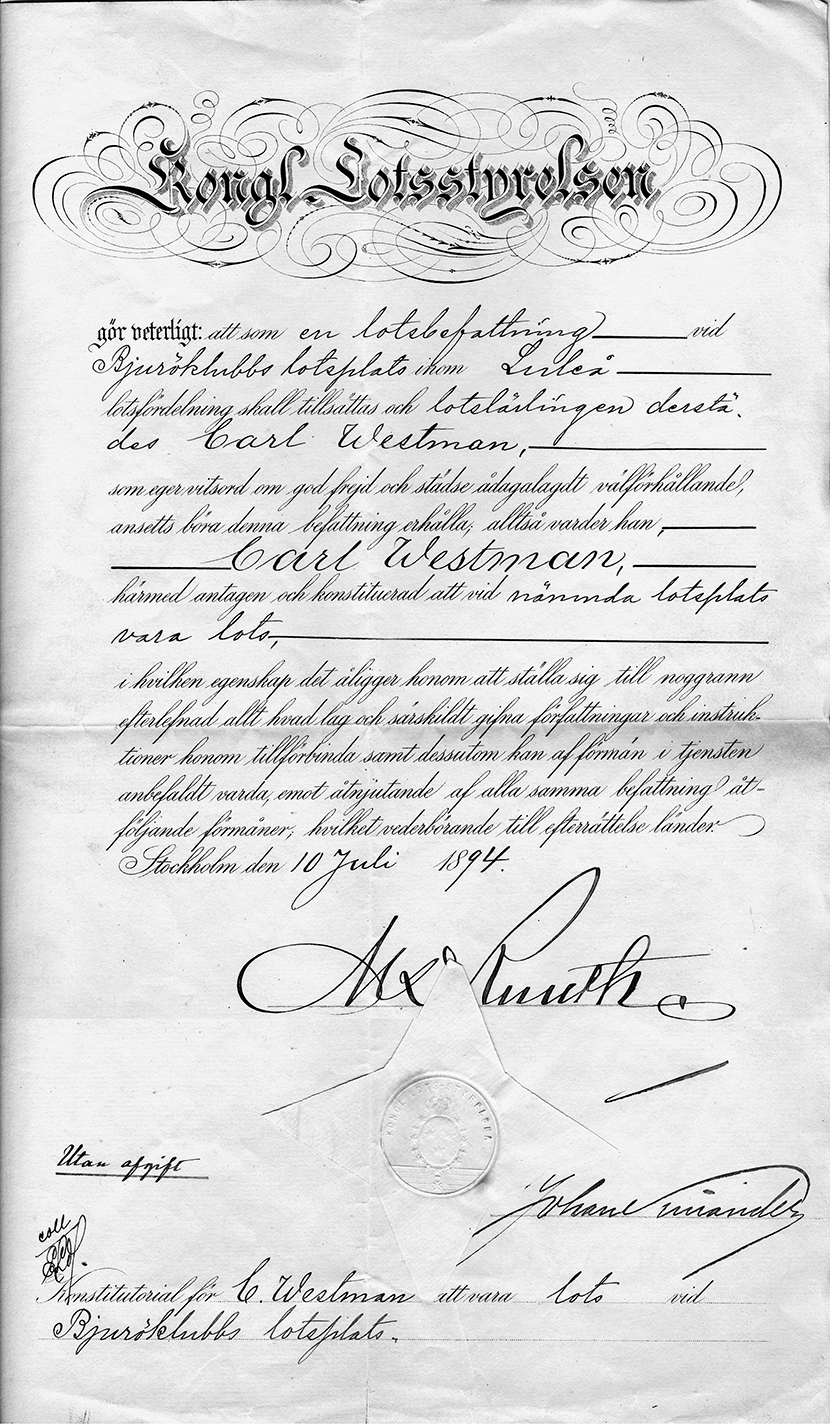 Kongl. Lotsstyrelsen
gör veterligt: att som en lotsbefattning vid
Bjuröklubbs lotsplats inom Luleå
lotsfördelning skall tillsättas och lotslärlingen derstä-
des Carl Westman,
som eger vitsord om god frejd och städse ådagalagdt välförhållande,
ansetts böra denna befattning erhålla; alltså varder han,
Carl Westman,
härmed antagen och konstituerad att vid nämnda lotsplats
vara lots,
i hvilken egenskap det åligger honom att ställa sig till noggrann
efterlefnad allt hvad lag och särskildt gifna författningar och instruk-
tioner honom tillförbinda samt dessutom kan af förmän i tjensten
anbefaldt varda, emot åtnjutande af alla samma befattning åt-
följande förmåner; hvilket vederbörande till efterrättelse länder.
Stockholm den 10 Juli 1894.
Ruuth
KONGL. LOTSSTYRELSEN
Utan afgift
Johan
coll
Konstitutorial för C. Westman att vara lots vid
Bjuröklubbs lotsplats.